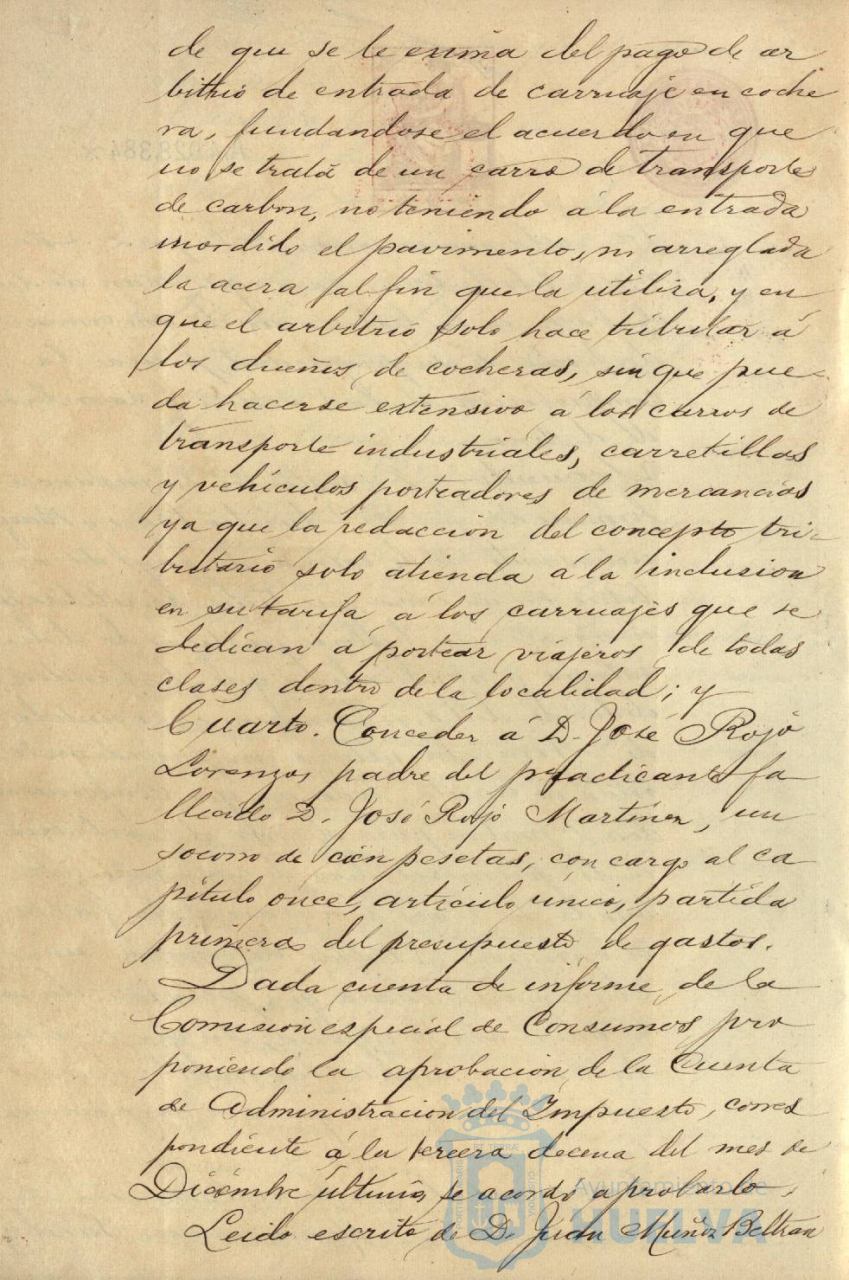 de que se le exima del pago de ar
bitrio de entrada de carruaje en coche
ra, fundandose el acuerdo en que
no se trata de un carro de transportes
de carbon, no teniendo á la entrada
mordido el pavimento, ni arreglada
la acera al fin que la utiliza, y en
que el arbitrio solo hace tributar á
los dueños de cocheras, sin que pue-
da hacerse extensivo á los carros de
transporte industriales, carretillas
y vehículos porteadores de mercancias
ya que la redacción del concepto tri-
butario solo atienda á la inclusion
en su tarifa á los carruajes que se
dedican á portear viajeros de todas
clases dentro de la localidad; y
Cuarto. Conceder á D. José Rojo
Lorenzo, padre del practicante fa-
llecido D. José Rojo Martinez, un
socorro de cien pesetas, con cargo al ca
pítulo once, artículo único, partida
primera del presupuesto de gastos.
Dada cuenta de informe de la
Comision especial de Consumos pro
poniendo la aprobacion de la Cuenta
de Administracion del Impuesto, corres
pondiente á la tercera decena del mes de
Diciembre último, se acordó aprobarlo.
Leido escrito de D. Juan Muñoz Beltran
Ayuntamiento de
HUELVA